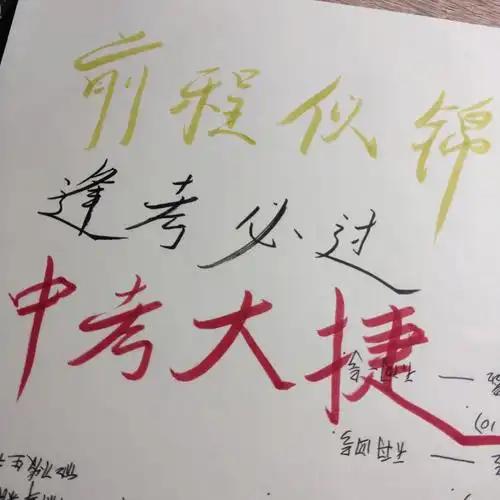 前程似锦
逢考必过
中考大捷